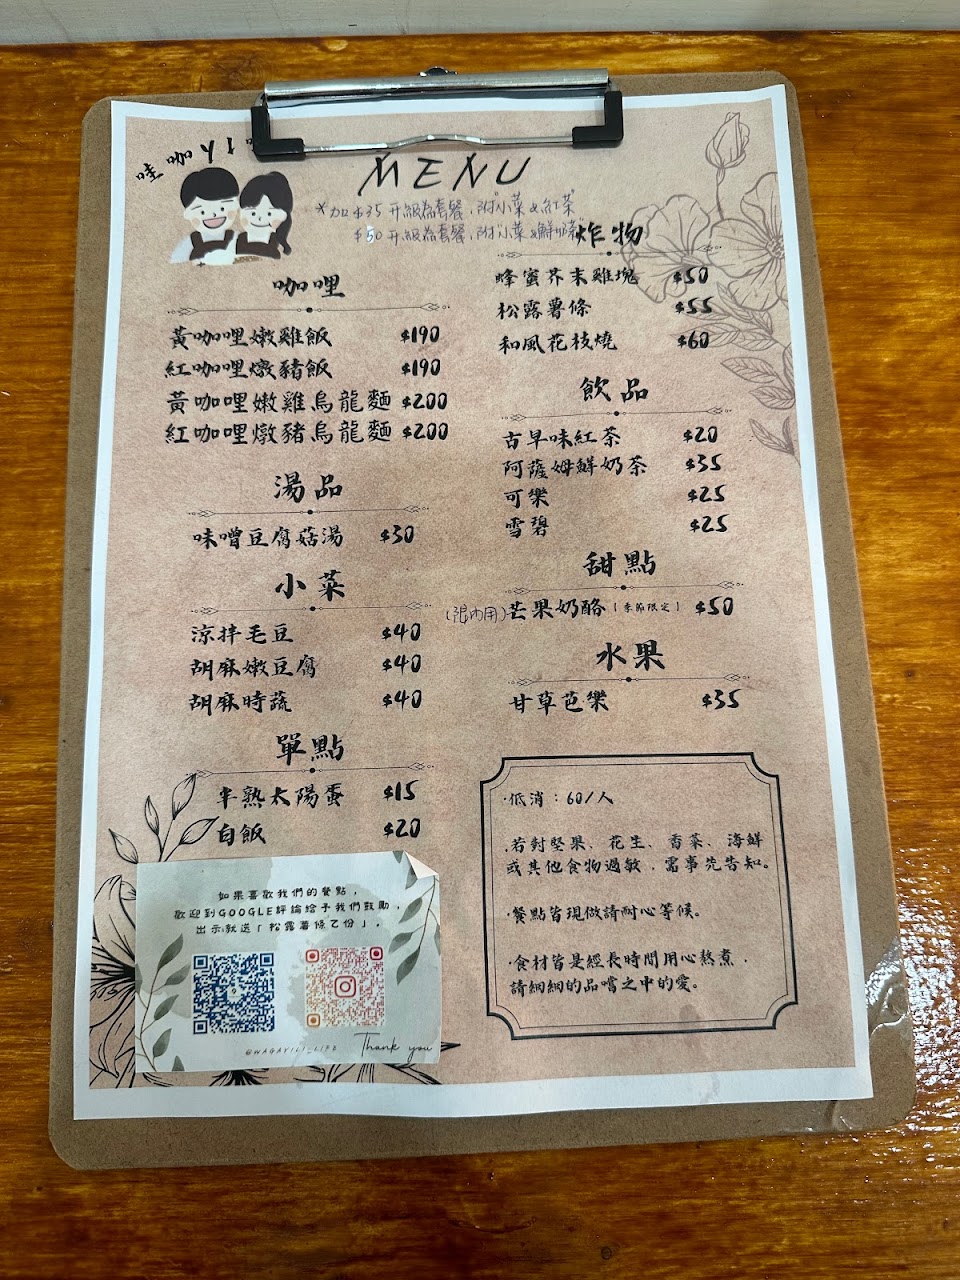 哇咖
MENU
*加$35升級為套餐,附"小菜&紅茶"
$50升級為套餐,附"小菜&鮮奶茶"
咖哩
黃咖哩嫩雞飯 $190
紅咖哩燉豬飯 $190
黃咖哩嫩雞烏龍麵 $200
紅咖哩燉豬烏龍麵 $200
湯品
味噌豆腐菇湯 $30
小菜
涼拌毛豆 $40
胡麻嫩豆腐 $40
胡麻時蔬 $40
單點
半熟太陽蛋 $15
白飯 $20
炸物
蜂蜜芥末雞塊 $50
松露薯條 $55
和風花枝燒 $60
飲品
古早味紅茶 $20
阿薩姆鮮奶茶 $35
可樂 $25
雪碧 $25
甜點
(限內用)芒果奶酪[季節限定] $50
水果
甘草芭樂 $35
·低消:60/人
·若對堅果、花生、香菜、海鮮
或其他食物過敏,需事先告知。
·餐點皆現做請耐心等候。
·食材皆是經長時間用心熬煮,
請細細的品嚐之中的愛。
如果喜歡我們的餐點,
歡迎到GOOGLE評論給予我們鼓勵,
出示就送「松露薯條乙份」。
@WAGAYILI_LIFE
Thank you